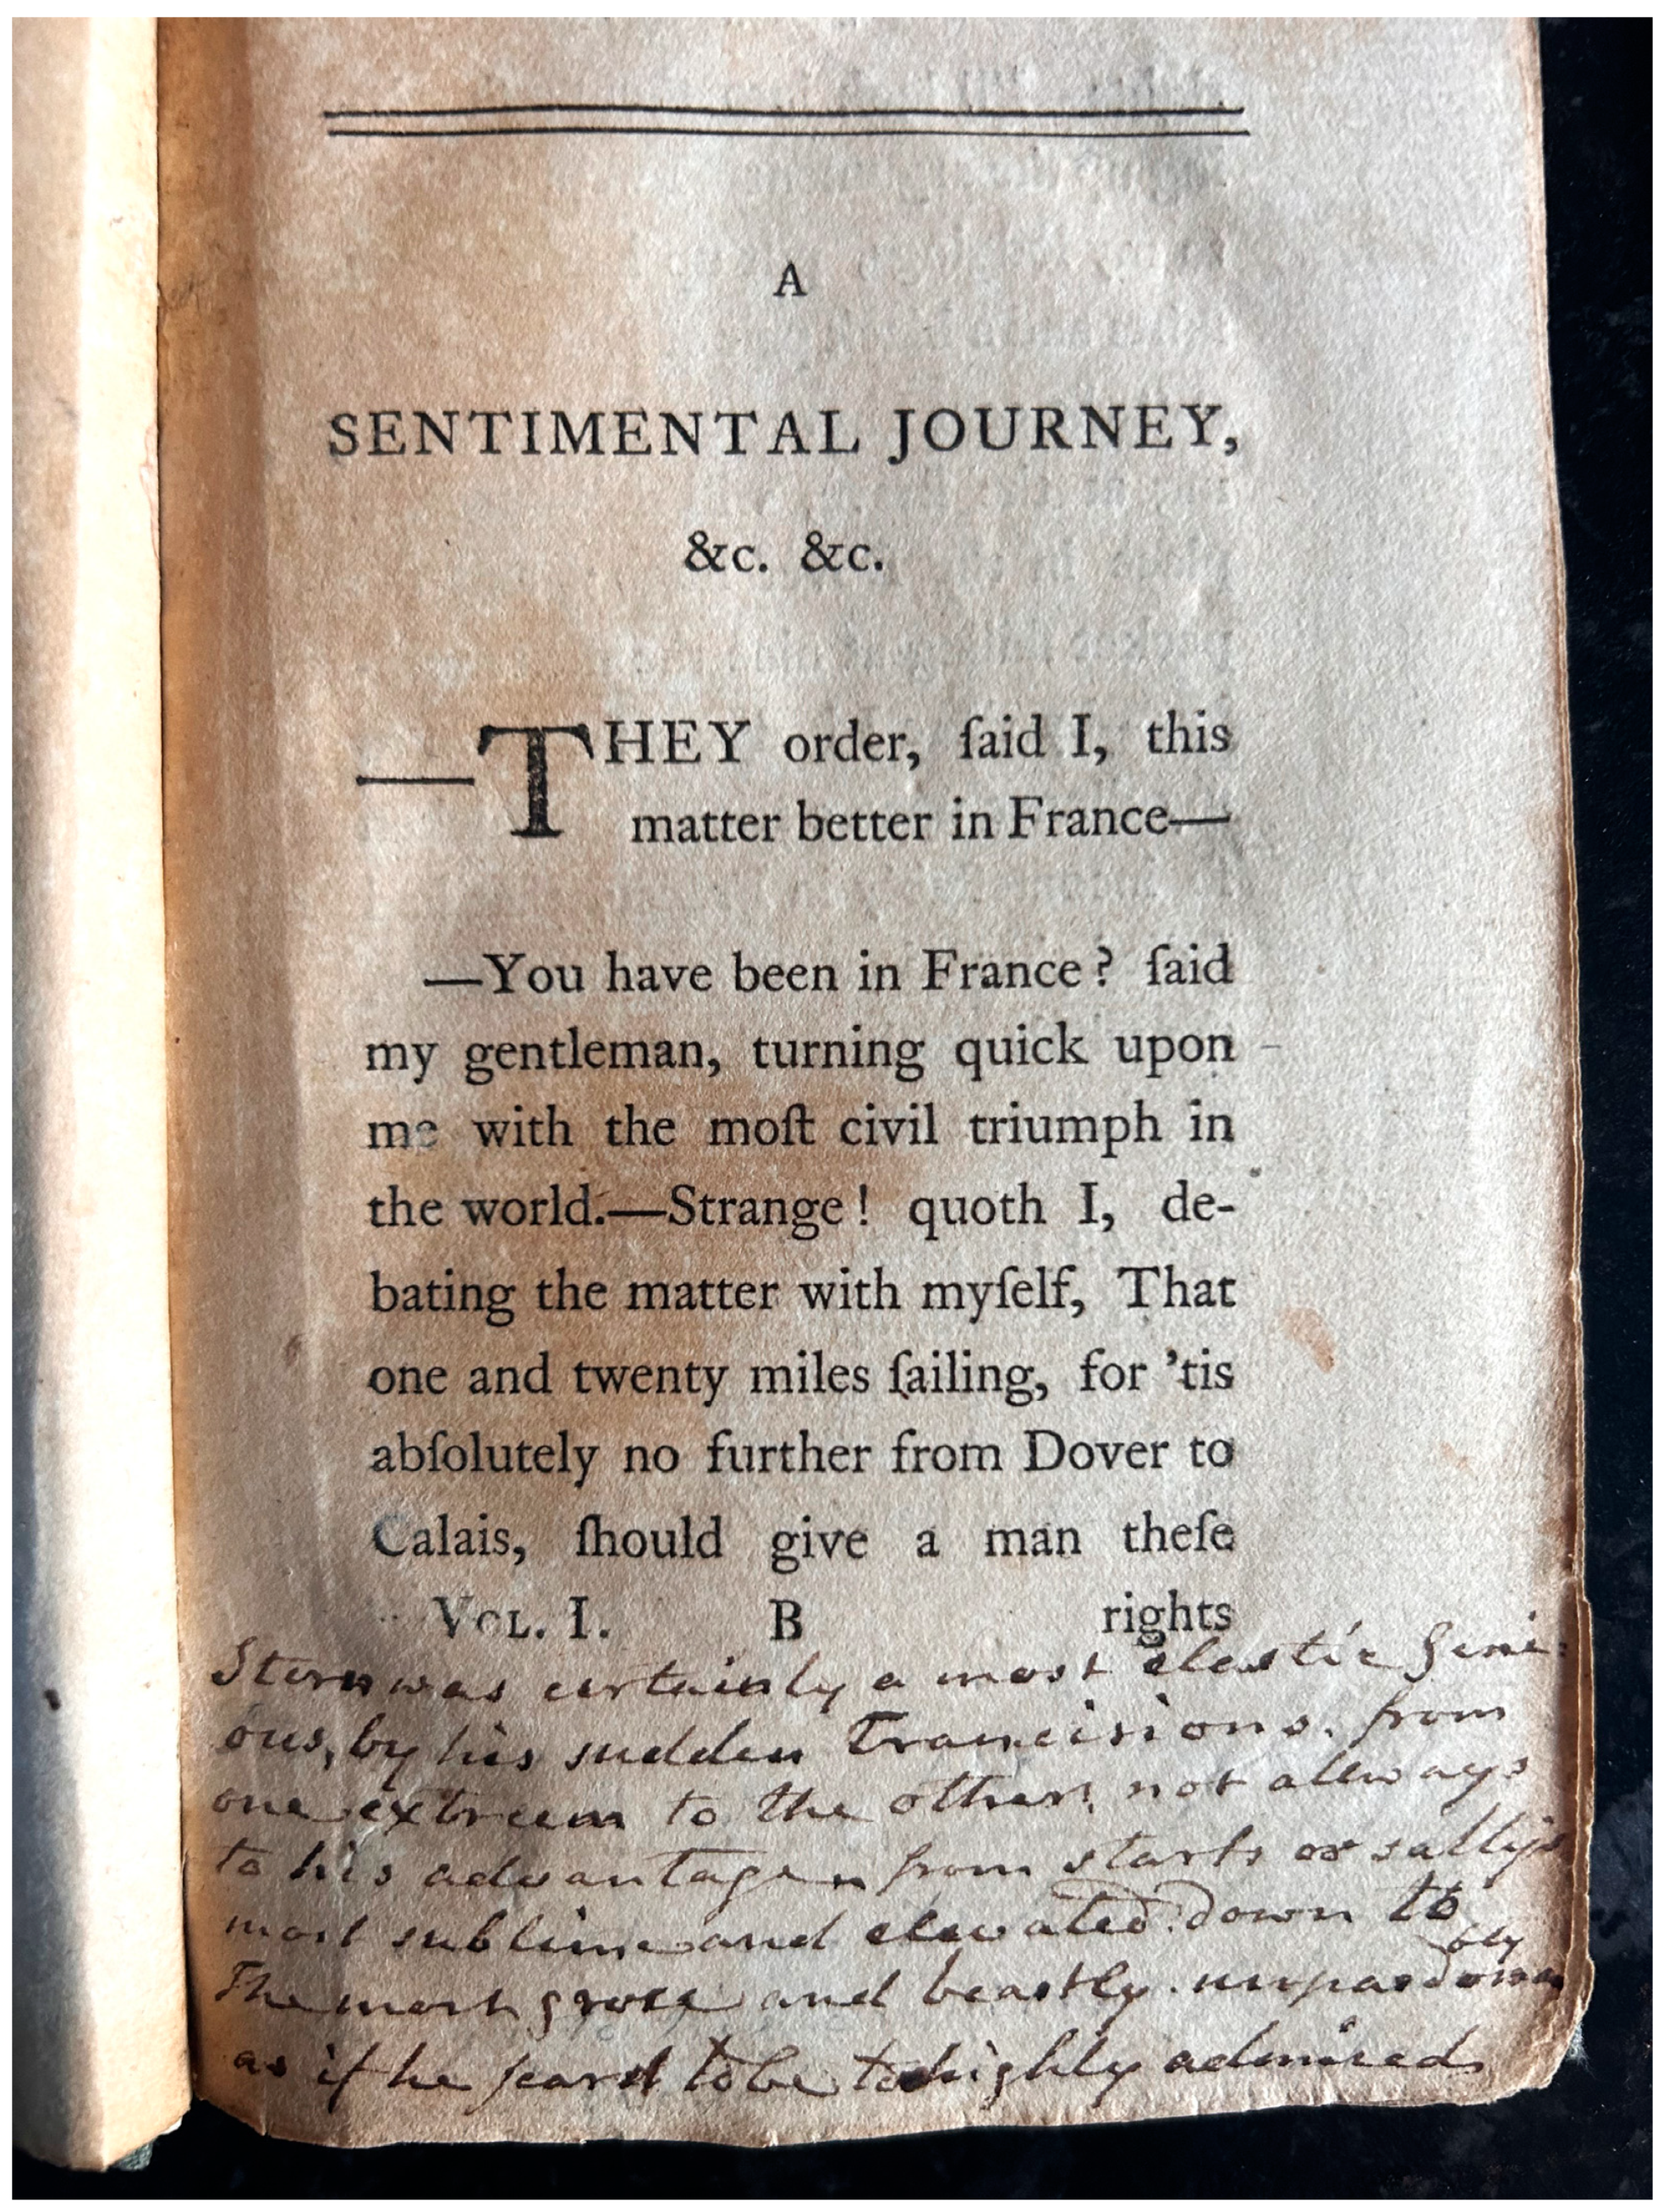 A
SENTIMENTAL JOURNEY,
&c. &c.
—THEY order, ſaid I, this
matter better in France—
—You have been in France? ſaid
my gentleman, turning quick upon
me with the moſt civil triumph in
the world.—Strange! quoth I, de-
bating the matter with myſelf, That
one and twenty miles ſailing, for 'tis
abſolutely no further from Dover to
Calais, ſhould give a man theſe
VOL. I. B rights
Stern was certainly a most elastic Geni-
ous, by his sudden Trancisions. from
one extreem to the other, not allways
to his advantage from starts or sallys
most sublime and elevated. down to
The most gross and beastly. unpardonably
as if he feard to be to highly admired